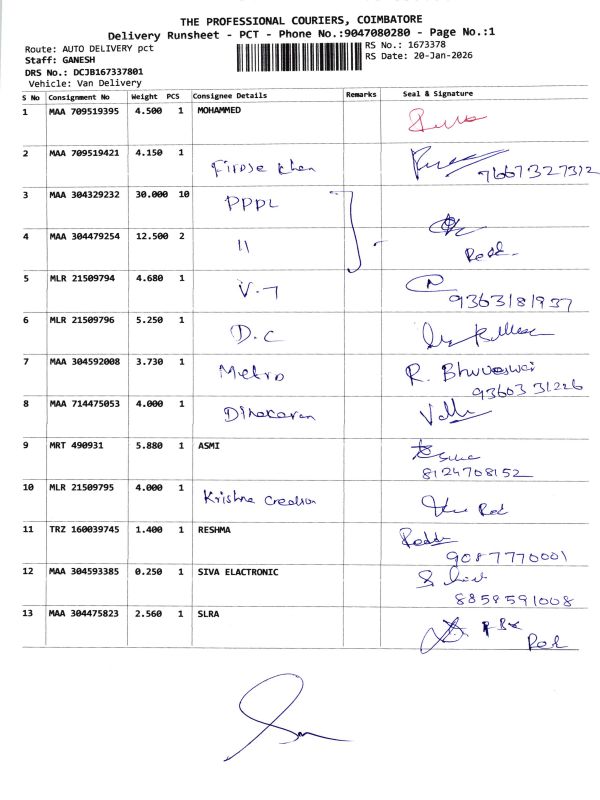 THE PROFESSIONAL COURIERS, COIMBATORE
Delivery Runsheet - PCT - Phone No.:9047080280 - Page No.:1
Route: AUTO DELIVERY pct
RS No.: 1673378
Staff: GANESH
RS Date: 20-Jan-2026
DRS No.: DCJB167337801
Vehicle: Van Delivery
S No Consignment No Weight PCS Consignee Details Remarks Seal & Signature
1 MAA 709519395 4.500 1 MOHAMMED
2 MAA 709519421 4.150 1 Firose khan 9667327312
3 MAA 304329232 30.000 10 PPPL
4 MAA 304479254 12.500 2 11
5 MLR 21509794 4.680 1 V.7
9363181937
6 MLR 21509796 5.250 1 D.C
7 MAA 304592008 3.730 1 Metro R. Bhuvaneswari
93603 31226
8 MAA 714475053 4.000 1 Dinakaran
9 MRT 490931 5.880 1 ASMI
8124708152
10 MLR 21509795 4.000 1 Krishna Creation
11 TRZ 160039745 1.400 1 RESHMA
9087770001
12 MAA 304593385 0.250 1 SIVA ELACTRONIC
8858591008
13 MAA 304475823 2.560 1 SLRA